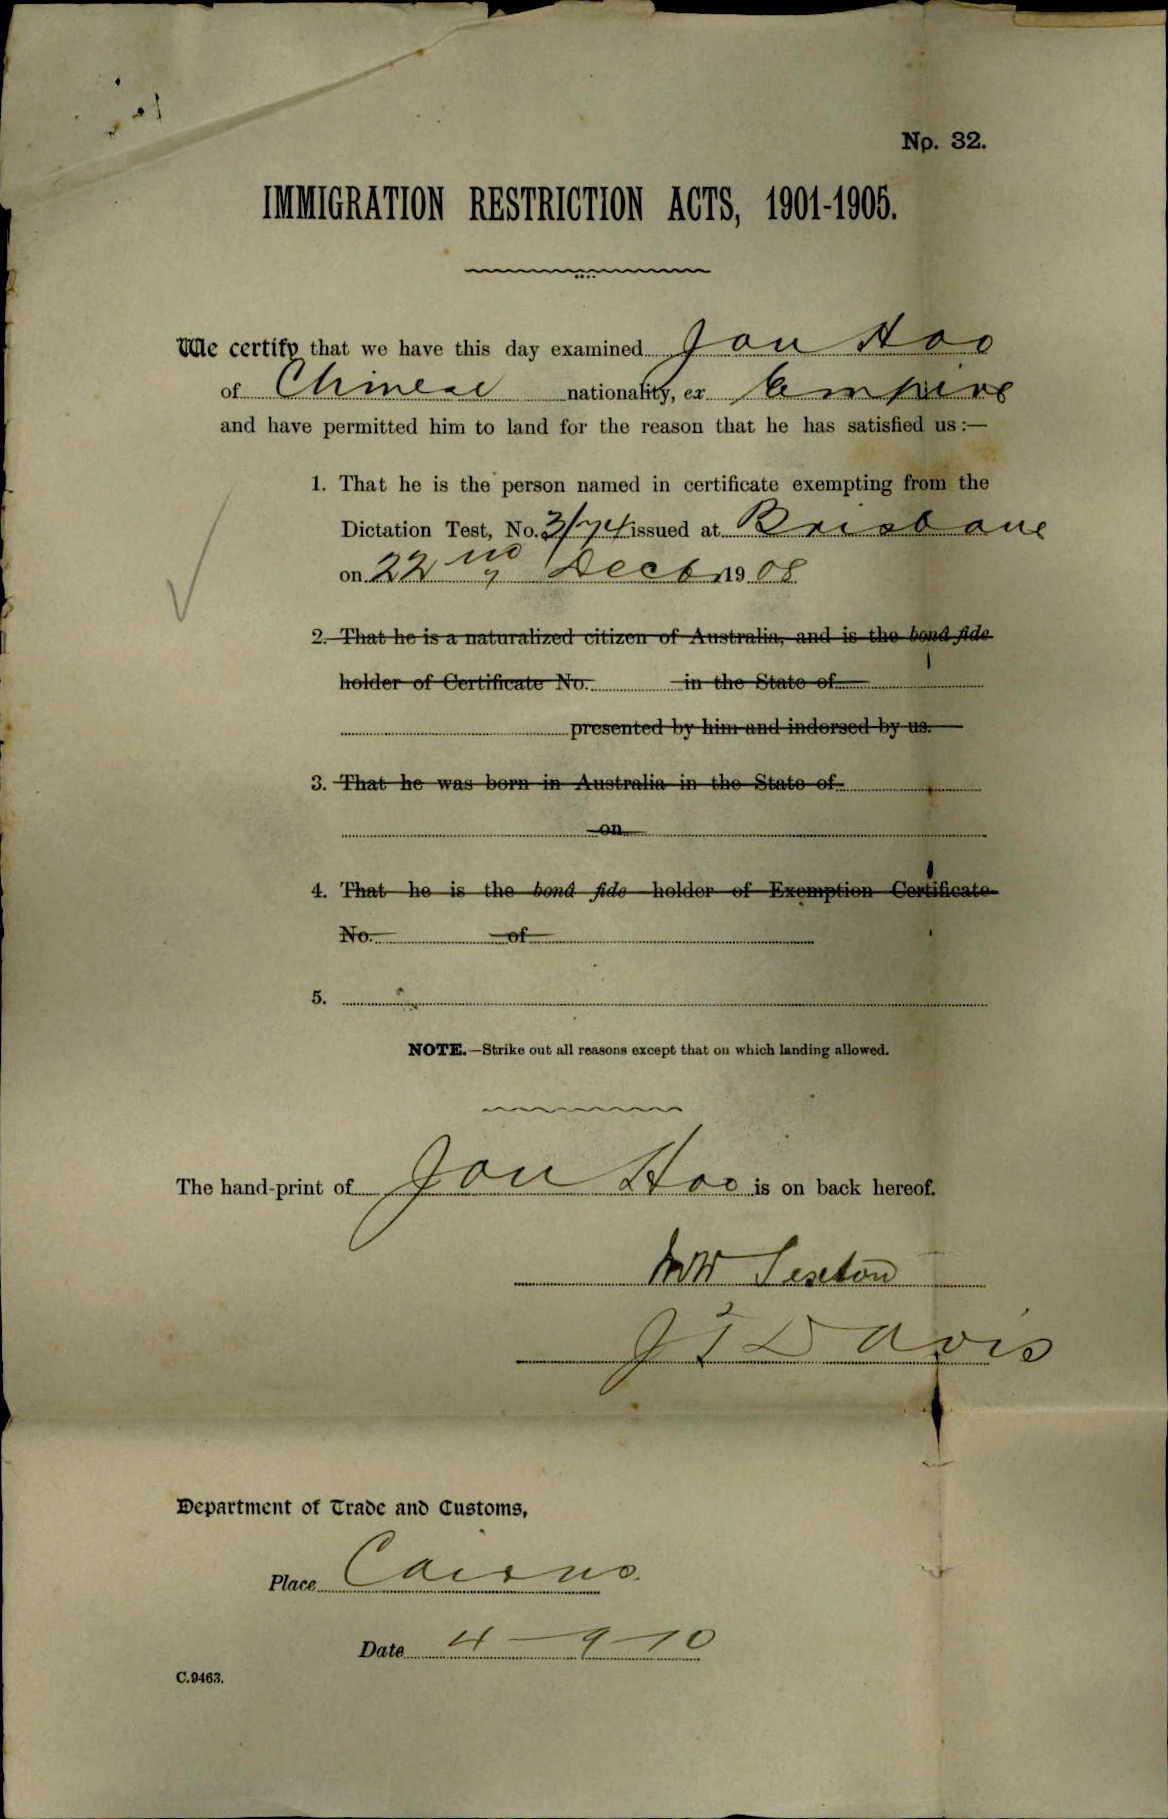 No. 32.
IMMIGRATION RESTRICTION ACTS, 1901-1905.
We certify that we have this day examined Jou Hoo
of Chinese nationality, ex Empire
and have permitted him to land for the reason that he has satisfied us:—
1. That he is the person named in certificate exempting from the
Dictation Test, No. 3/74 issued at Brisbane
on 22nd Decbr 1908
2. That he is a naturalized citizen of Australia, and is the bonâ fide
holder of Certificate No. in the State of
presented by him and indorsed by us.
3. That he was born in Australia in the State of
on
4. That he is the bonâ fide holder of Exemption Certificate
No. of
5.
NOTE.—Strike out all reasons except that on which landing allowed.
The hand-print of Jou Hoo is on back hereof.
Sexton
J T Davis
Department of Trade and Customs,
Place Cairns
Date 4-9-10
C.9463.